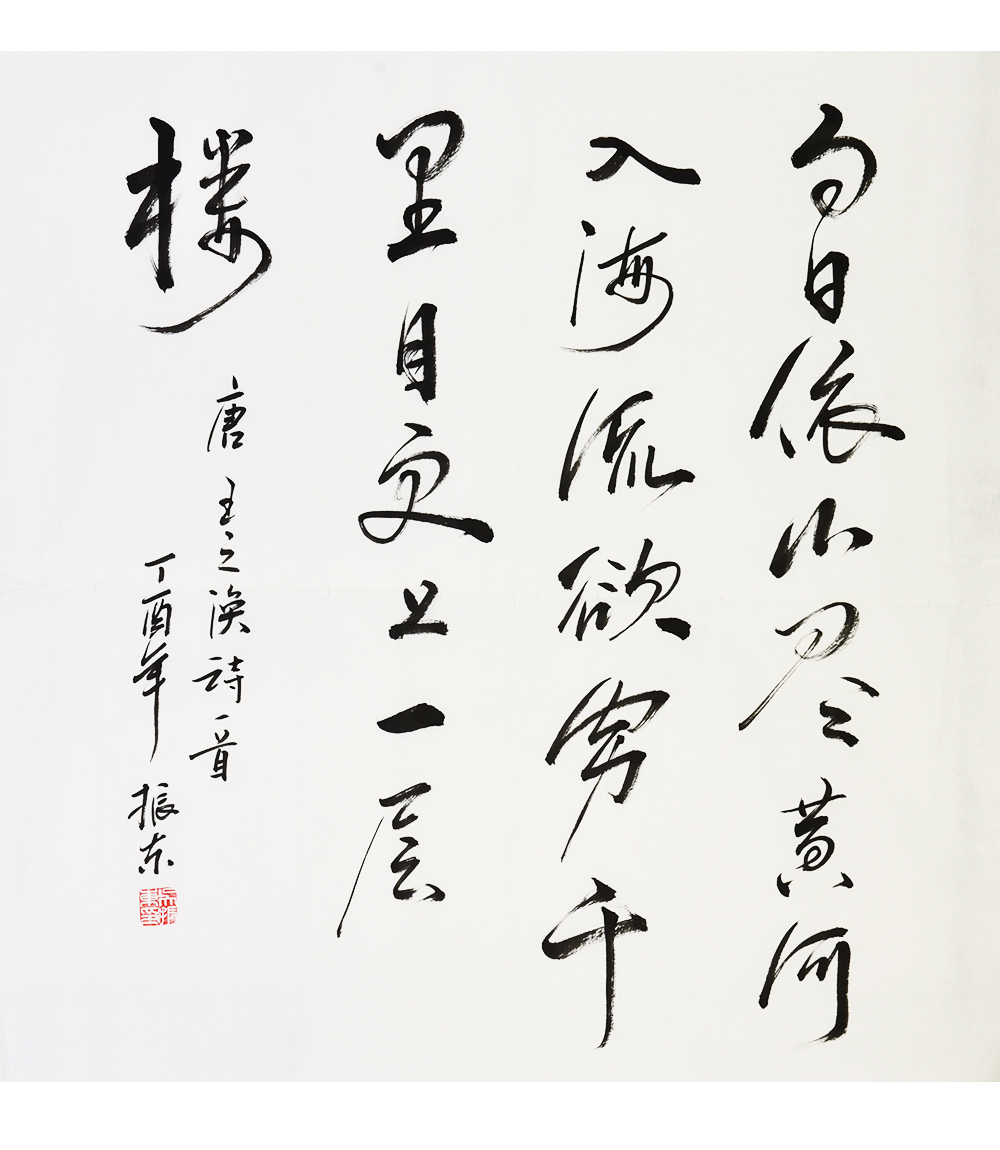 白日依山尽黄河
入海流欲穷千
里目更上一层
楼
唐王之涣詩一首
丁酉年振东